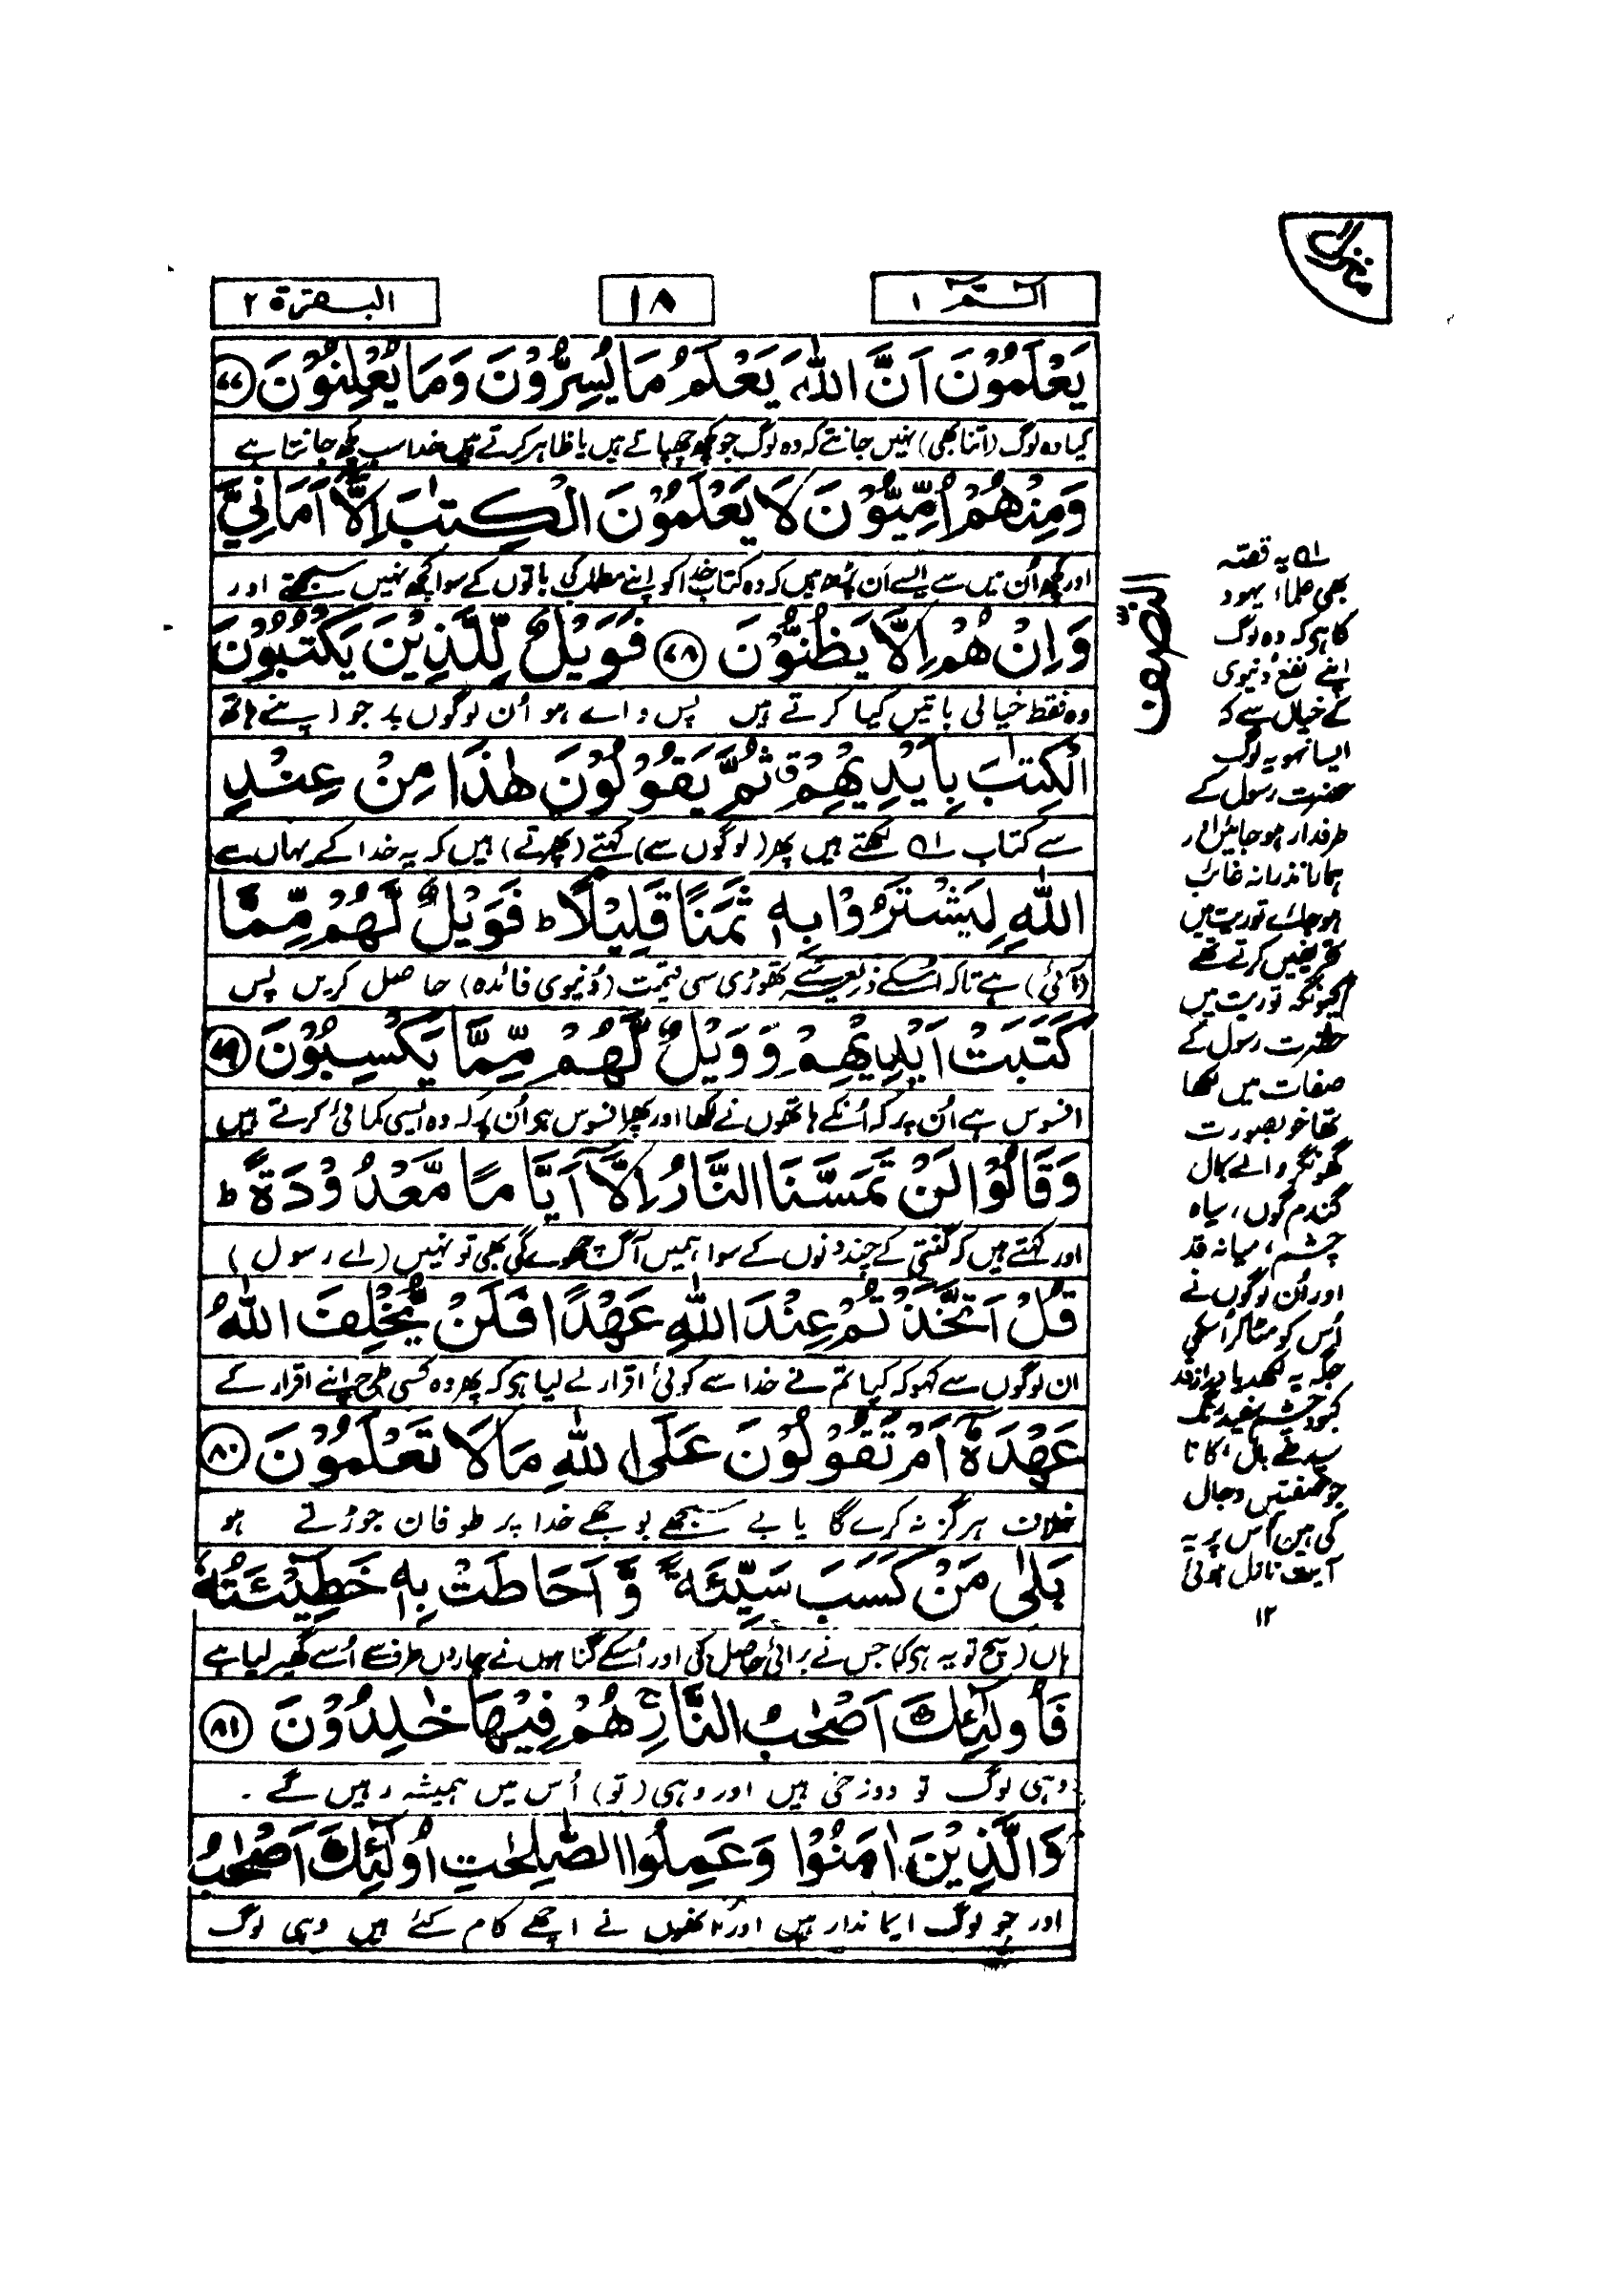 الٓمّٓ ١
١٨
البقرة ٢
يَعْلَمُوْنَ اَنَّ اللّٰهَ يَعْلَمُ مَا يُسِرُّوْنَ وَمَا يُعْلِنُوْنَ ﴿٧٧﴾
کیا وہ لوگ (اتنا بھی) نہیں جانتے کہ وہ لوگ جو کچھ چھپاتے ہیں یا ظاہر کرتے ہیں خدا سب کچھ جانتا ہے
وَمِنْهُمْ اُمِّيُّوْنَ لَا يَعْلَمُوْنَ الْكِتٰبَ اِلَّآ اَمَانِيَّ
اور کچھ اُن میں سے ایسے اَن پڑھ ہیں کہ وہ کتاب خدا کو اپنے مطلب کی باتوں کے سوا کچھ نہیں سمجھتے اور
وَاِنْ هُمْ اِلَّا يَظُنُّوْنَ ﴿٧٨﴾ فَوَيْلٌ لِّلَّذِيْنَ يَكْتُبُوْنَ
وہ فقط خیالی باتیں کیا کرتے ہیں پس وائے ہو اُن لوگوں پر جو اپنے ہاتھ
الْكِتٰبَ بِاَيْدِيْهِمْ ق ثُمَّ يَقُوْلُوْنَ هٰذَا مِنْ عِنْدِ
سے کتاب لکھتے ہیں پھر (لوگوں سے) کہتے (پھرتے) ہیں کہ یہ خدا کے یہاں سے
اللّٰهِ لِيَشْتَرُوْا بِهٖ ثَمَنًا قَلِيْلًا ط فَوَيْلٌ لَّهُمْ مِّمَّا
(آئی) ہے تاکہ اسکے ذریعہ سے تھوڑی سی قیمت (دُنیوی فائدہ) حاصل کریں پس
كَتَبَتْ اَيْدِيْهِمْ وَوَيْلٌ لَّهُمْ مِّمَّا يَكْسِبُوْنَ ﴿٧٩﴾
افسوس ہے اُن پر کہ اُنکے ہاتھوں نے لکھا اور پھر افسوس ہو اُن پر کہ وہ ایسی کمائی کرتے ہیں
وَقَالُوْا لَنْ تَمَسَّنَا النَّارُ اِلَّآ اَيَّامًا مَّعْدُوْدَةً ط
اور کہتے ہیں کہ گنتی کے چند دنوں کے سوا ہمیں آگ چھوئے گی بھی تو نہیں (اے رسول)
قُلْ اَتَّخَذْتُمْ عِنْدَ اللّٰهِ عَهْدًا فَلَنْ يُّخْلِفَ اللّٰهُ
ان لوگوں سے کہو کہ کیا تم نے خدا سے کوئی اقرار لے لیا ہے کہ پھر وہ کسی طرح اپنے اقرار کے
عَهْدَهٗٓ اَمْ تَقُوْلُوْنَ عَلَى اللّٰهِ مَا لَا تَعْلَمُوْنَ ﴿٨٠﴾
خلاف ہرگز نہ کرے گا یا بے سمجھے بوجھے خدا پر طوفان جوڑتے ہو
بَلٰى مَنْ كَسَبَ سَيِّئَةً وَّاَحَاطَتْ بِهٖ خَطِيْٓئَتُهٗ
ہاں (سچ تو یہ ہے کہ) جس نے برائی حاصل کی اور اُسکے گناہوں نے چاروں طرف سے اُسے گھیر لیا ہے
فَاُولٰٓئِكَ اَصْحٰبُ النَّارِ ج هُمْ فِيْهَا خٰلِدُوْنَ ﴿٨١﴾
وہی لوگ تو دوزخی ہیں اور وہی (تو) اُس میں ہمیشہ رہیں گے۔
وَالَّذِيْنَ اٰمَنُوْا وَعَمِلُوا الصّٰلِحٰتِ اُولٰٓئِكَ اَصْحٰبُ
اور جو لوگ ایماندار ہیں اور اُنھوں نے اچھے کام کئے ہیں وہی لوگ
یہ قصّہ
بھی علماء یہود
کا ہی کہ وہ لوگ
اپنے نفع دُنیوی
کے خیال سے کہ
ایسا نہو یہ لوگ
حضرت رسول کے
طرفدار ہو جائیں اور
ہمارا نذرانہ غائب
ہو جائے توریت میں
تحریفیں کرتے تھے
کیونکہ توریت میں
حضرت رسول کے
صفات میں لکھا
تھا خوبصورت
گھونگر والے بال
گندم گوں، سیاہ
چشم، میانہ قد
اور اُن لوگوں نے
اُس کو مٹا کر اُسکی
جگہ یہ لکھدیا دراز قد
کبود چشم سفید رنگ
سیدھے بال، کانا
جو صفتیں دجال
کی ہیں اُس پر یہ
آیت نازل ہوئی
١٢